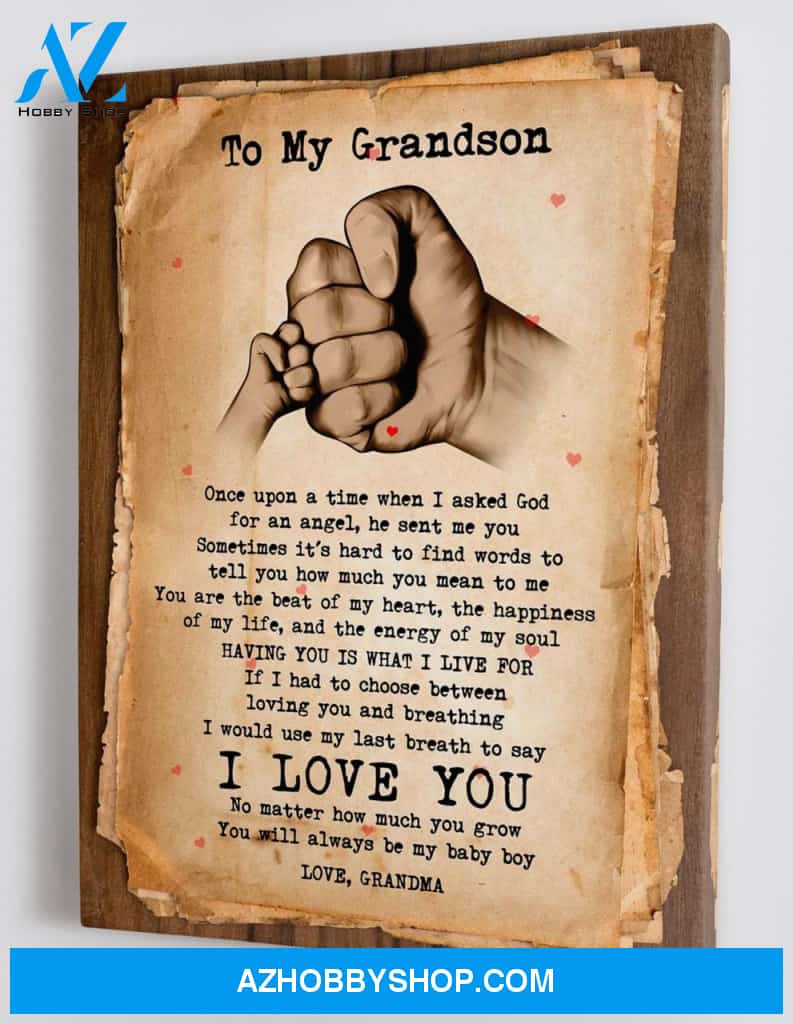 AZ
HOBBY SHOP
To My Grandson
Once upon a time when I asked God
for an angel, he sent me you
Sometimes it's hard to find words to
tell you how much you mean to me
You are the beat of my heart, the happiness
of my life, and the energy of my soul
HAVING YOU IS WHAT I LIVE FOR
If I had to choose between
loving you and breathing
I would use my last breath to say
I LOVE YOU
No matter how much you grow
You will always be my baby boy
LOVE, GRANDMA
AZHOBBYSHOP.COM